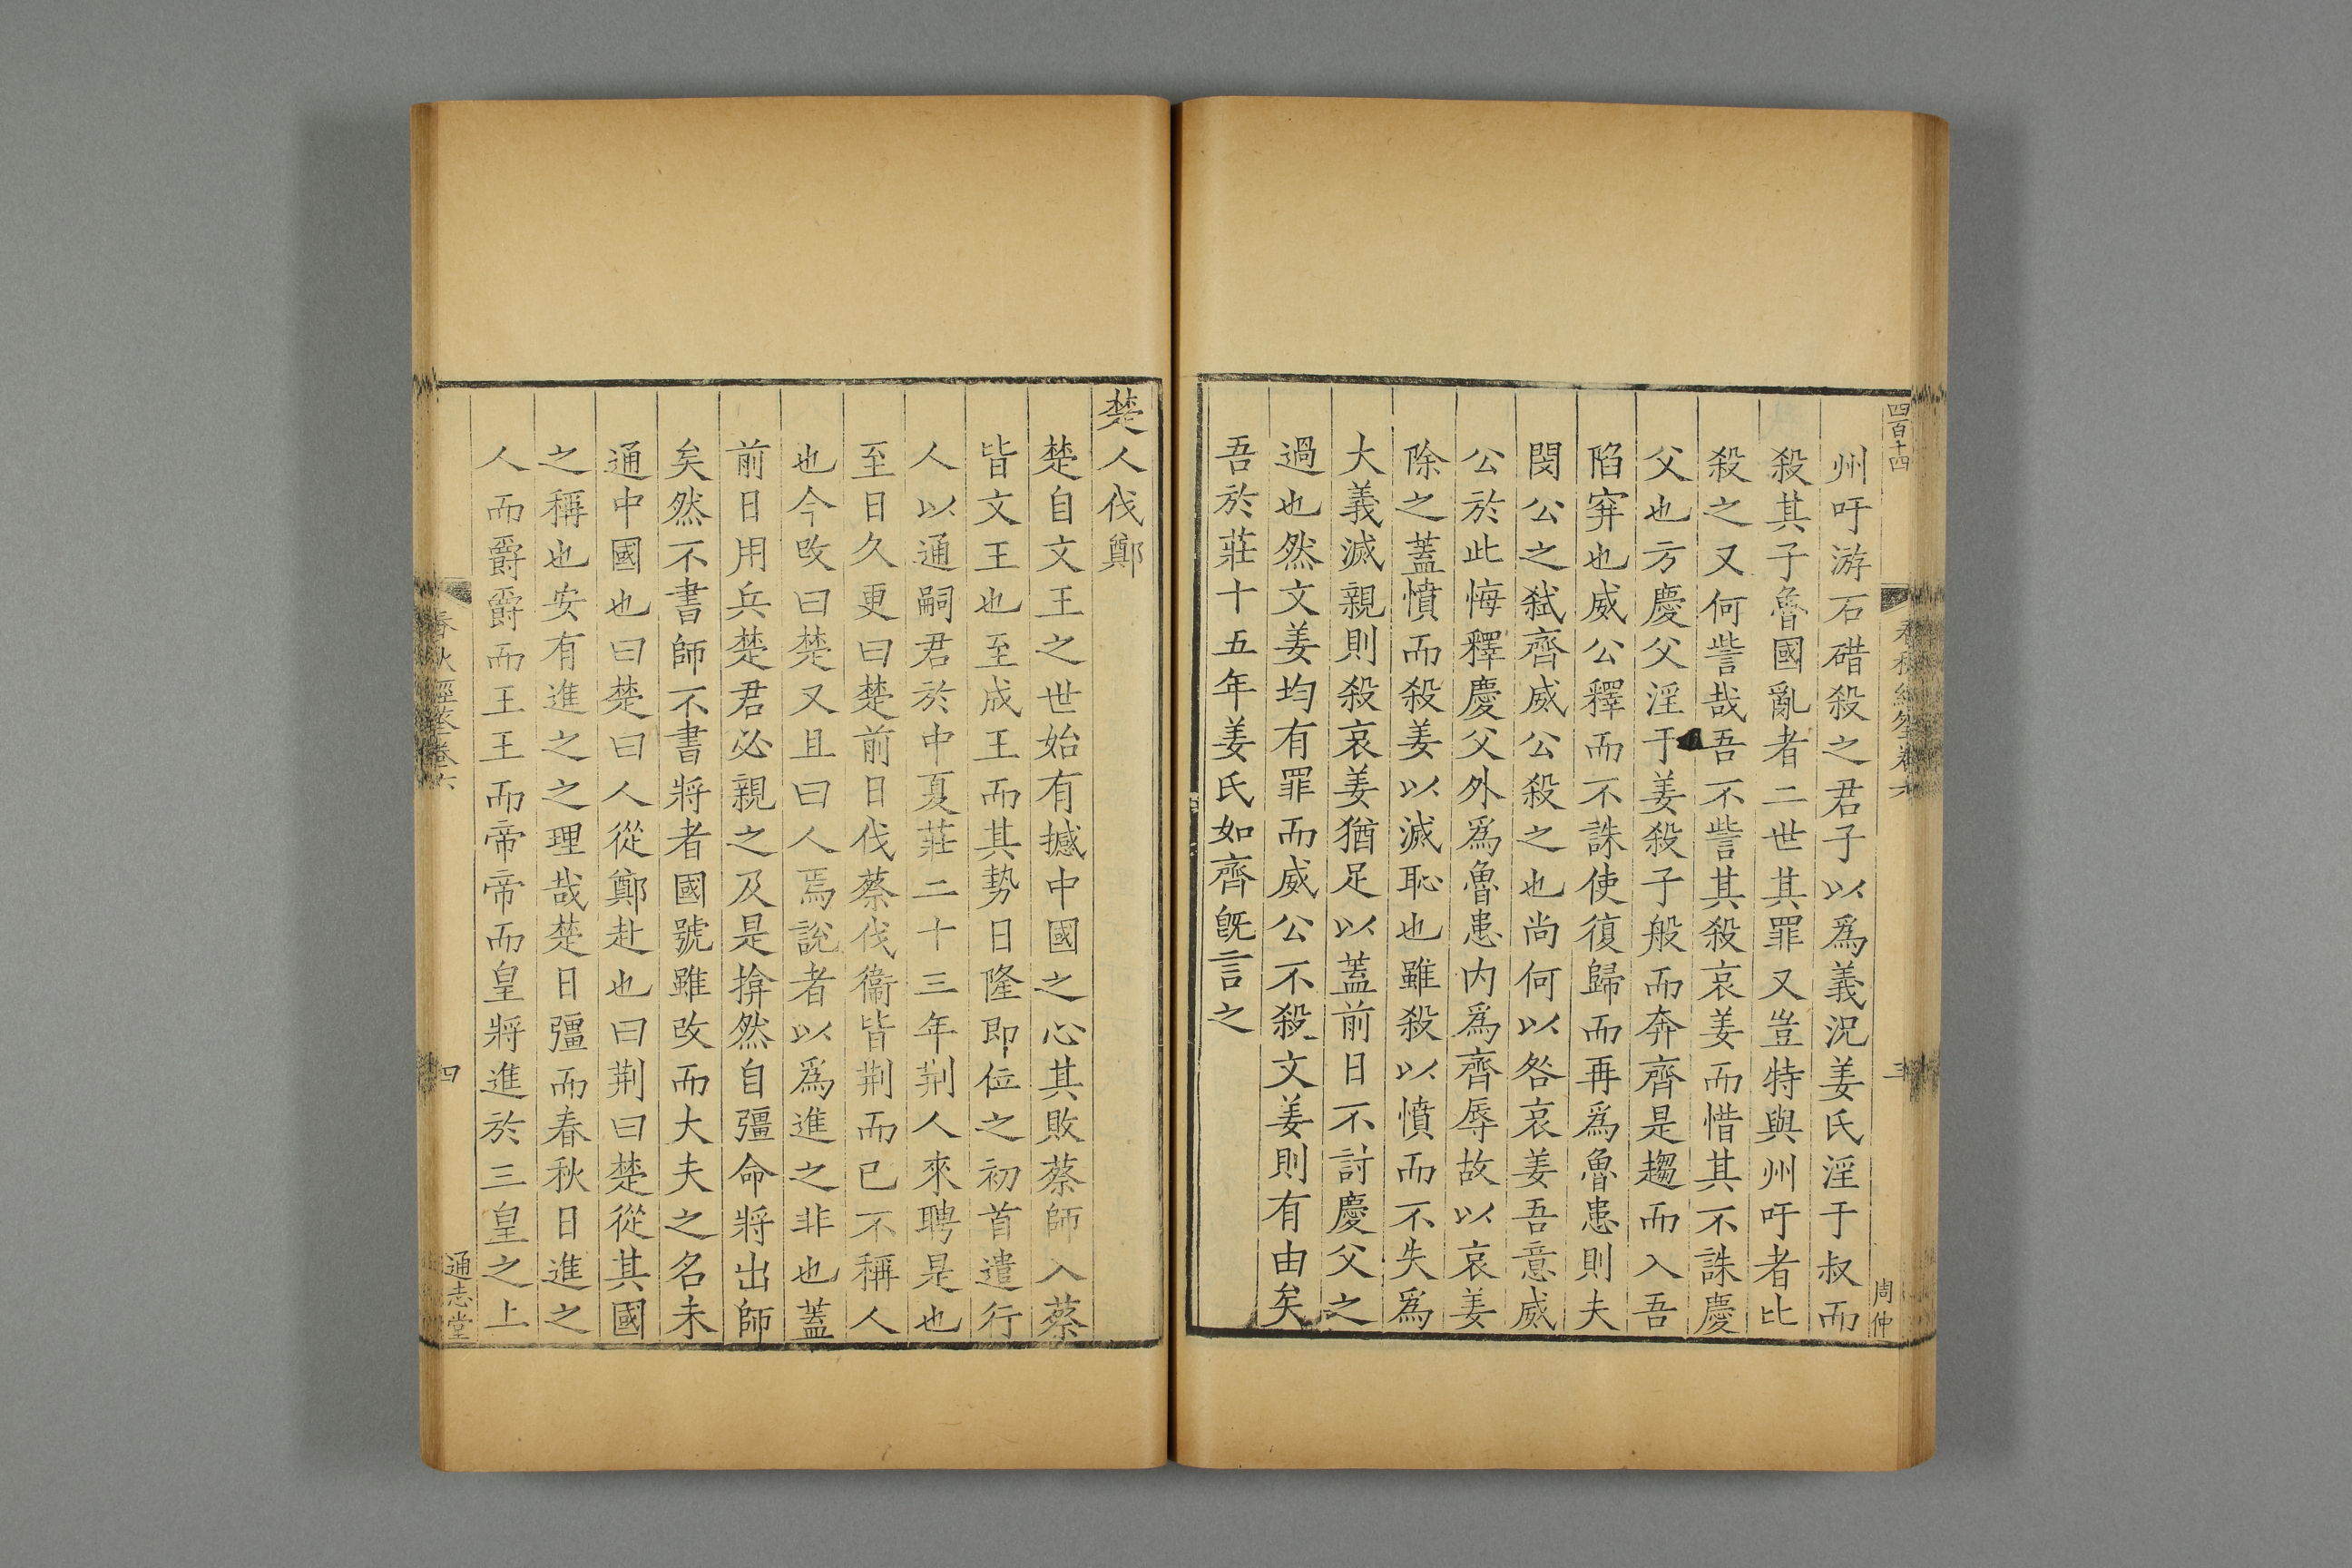 四百十四
周仲
三
州吁游石碏殺之君子以爲義況姜氏淫于叔而
殺其子魯國亂者二世其罪又豈特與州吁者比
殺之又何訾哉吾不訾其殺哀姜而惜其不誅慶
父也方慶父淫于姜殺子般而奔齊是趨而入吾
陷穽也威公釋而不誅使復歸而再爲魯患則夫
閔公之弑齊威公殺之也尚何以咎哀姜吾意威
公於此悔釋慶父外爲魯患内爲齊辱故以哀姜
除之蓋憤而殺姜以滅恥也雖殺以憤而不失爲
大義滅親則殺哀姜猶足以蓋前日不討慶父之
過也然文姜均有罪而威公不殺文姜則有由矣
吾於莊十五年姜氏如齊旣言之
楚人伐鄭
楚自文王之世始有撼中國之心其敗蔡師入蔡
皆文王也至成王而其勢日隆即位之初首遣行
人以通嗣君於中夏莊二十三年荆人來聘是也
至日久更曰楚前日伐蔡伐衞皆荆而已不稱人
也今改曰楚又且曰人焉說者以爲進之非也蓋
前日用兵楚君必親之及是揜然自彊命將出師
矣然不書師不書將者國號雖改而大夫之名未
通中國也曰楚曰人從鄭赴也曰荆曰楚從其國
之稱也安有進之之理哉楚日彊而春秋日進之
人而爵爵而王王而帝帝而皇將進於三皇之上
春秋經筌卷六
四
通志堂